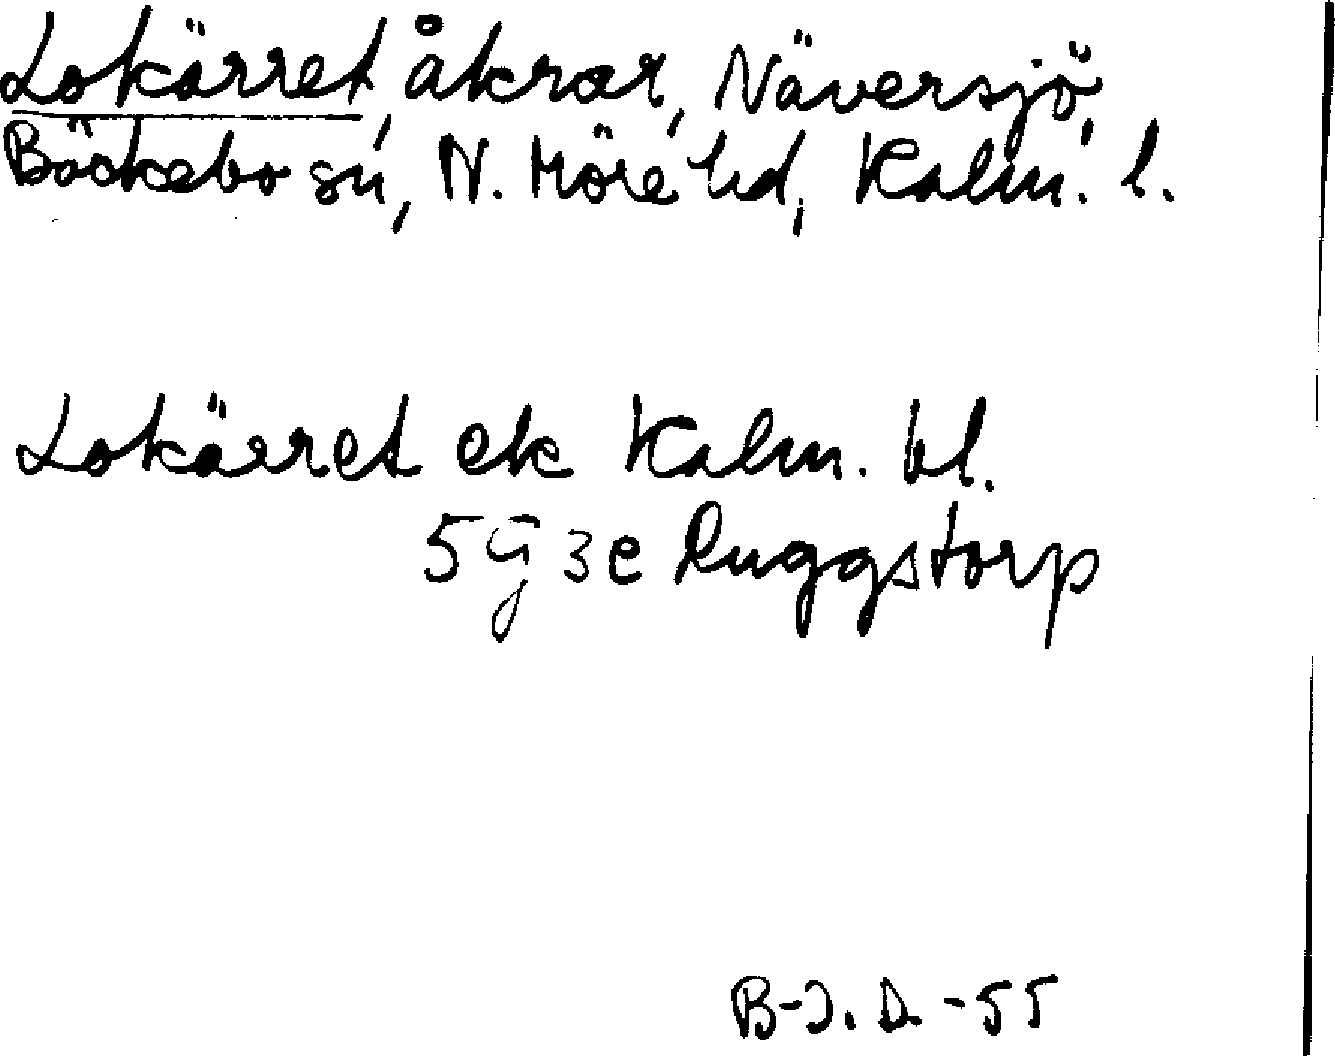 Lokärret, åkrar, Näversjö,
Bäckebo sn, N. Möre hd, Kalm. l.
Lokärret ek Kalm. bl.
5 G 3e Ruggstorp
B-I. D. -55